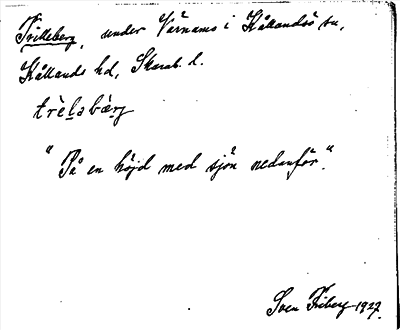 Trilleberg, under Värnams i Kållandsö sn,
Kållands hd, Skarab. l.
trèlabæ̀rj
"På en höjd med sjön nedanför."
Sven Friberg 1927.